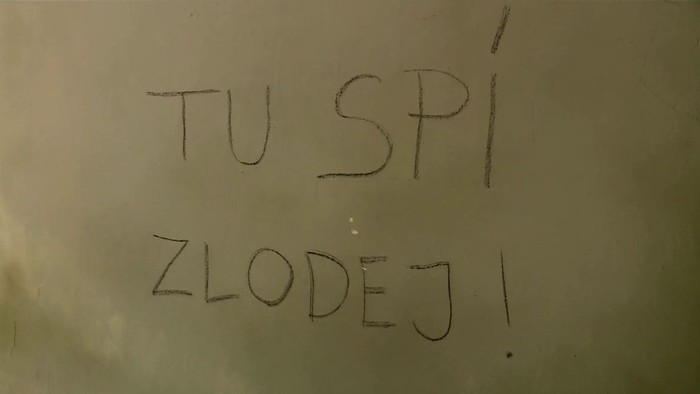 TU SPÍ
ZLODEJ!